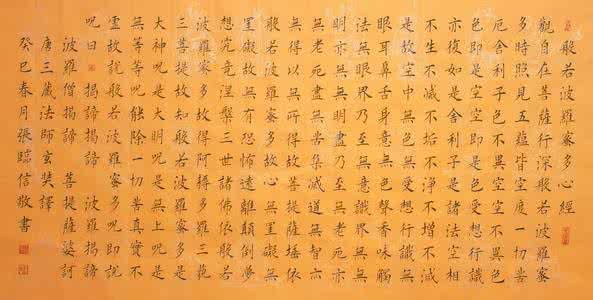 般若波羅蜜多心經
觀自在菩薩行深般若波羅蜜
多時照見五蘊皆空度一切苦
厄舍利子色不異空空不異色
色即是空空即是色受想行識
亦復如是舍利子是諸法空相
不生不滅不垢不淨不增不減
是故空中無色無受想行識無
眼耳鼻舌身意無色聲香味觸
法無眼界乃至無意識界無無
明亦無無明盡乃至無老死亦
無老死盡無苦集滅道無智亦
無得以無所得故菩提薩埵依
般若波羅蜜多故心無罣礙無
罣礙故無有恐怖遠離顛倒夢
想究竟涅槃三世諸佛依般若
波羅蜜多故得阿耨多羅三藐
三菩提故知般若波羅蜜多是
大神呪是大明呪是無上呪是
無等等呪能除一切苦真實不
虛故說般若波羅蜜多呪即說
呪曰 揭諦揭諦 波羅揭諦
波羅僧揭諦 菩提薩婆訶
唐三藏法師玄奘譯
癸巳春月張臨信敬書